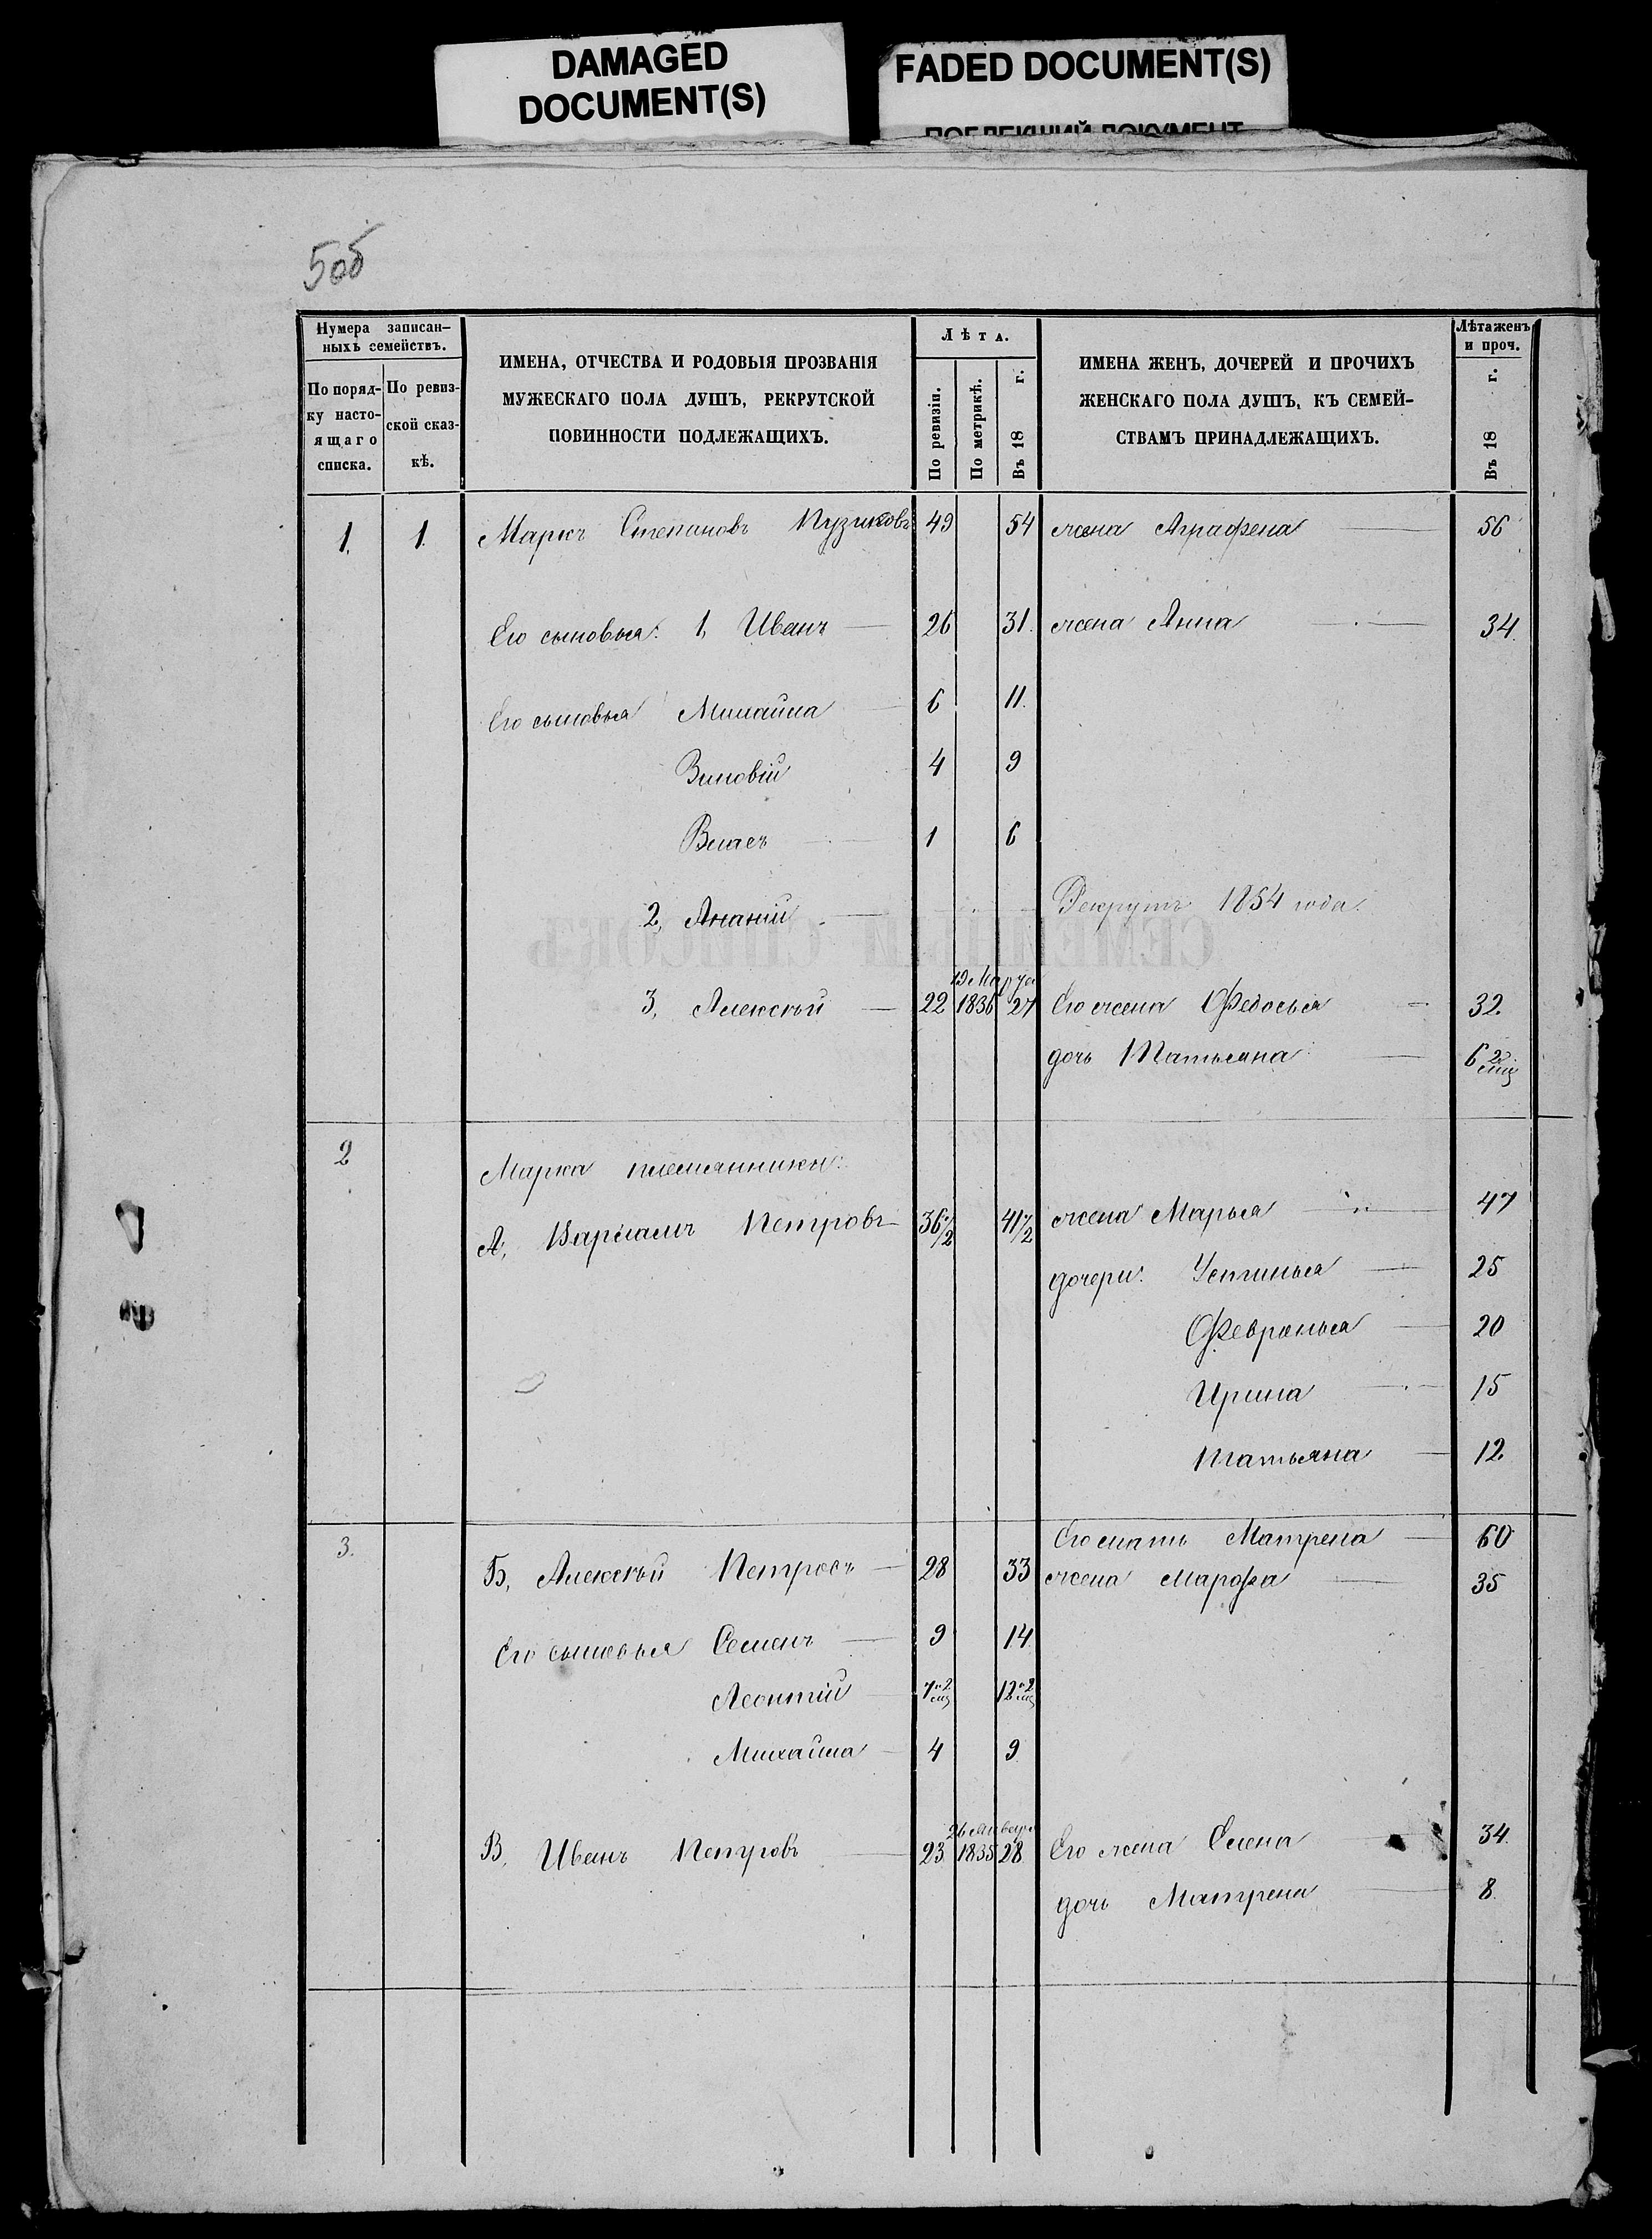 DAMAGED
DOCUMENT(S)
FADED DOCUMENT(S)
506
Нумера записан-
ныхъ семействъ.
По поряд-
ку насто-
ящаго
списка.
По ревиз-
ской сказ-
кѣ.
ИМЕНА, ОТЧЕСТВА И РОДОВЫЯ ПРОЗВАНІЯ
МУЖЕСКАГО ПОЛА ДУШЪ, РЕКРУТСКОЙ
ПОВИННОСТИ ПОДЛЕЖАЩИХЪ.
Лѣта.
По ревизіи.
По метрикѣ.
Въ 18 г.
ИМЕНА ЖЕНЪ, ДОЧЕРЕЙ И ПРОЧИХЪ
ЖЕНСКАГО ПОЛА ДУШЪ, КЪ СЕМЕЙ-
СТВАМЪ ПРИНАДЛЕЖАЩИХЪ.
Лѣта женъ
и проч.
Въ 18 г.
1. 1. Маркъ Степановъ Пузиковъ 49 54 жена Аграфена 56
Его сыновья: 1, Иванъ 26 31. жена Анна 34.
Его сыновья Михайла 6 11.
Зиновій 4 9
Власъ 1 6
2, Ананій Рекрутъ 1854 года.
19 Марта
3, Алексѣй 22 1836 27 Его жена Федосья 32.
дочь Татьяна 6 2 мц
2 Марка племянники:
А, Варламъ Петровъ 36 1/2 41 1/2 жена Марья 47
дочери: Устинья 25
Февронья 20
Ирина 15
Татьяна 12.
Его мать Матрена 60
3. Б, Алексѣй Петровъ 28 33 жена Марфа 35
Его сыновья Семенъ 9 14
Леонтій 7 и 2 мц 12 и 2 мц
Михайла 4 9
26 Января
В, Иванъ Петровъ 23 1835 28 Его жена Елена 34.
дочь Матрена 8.